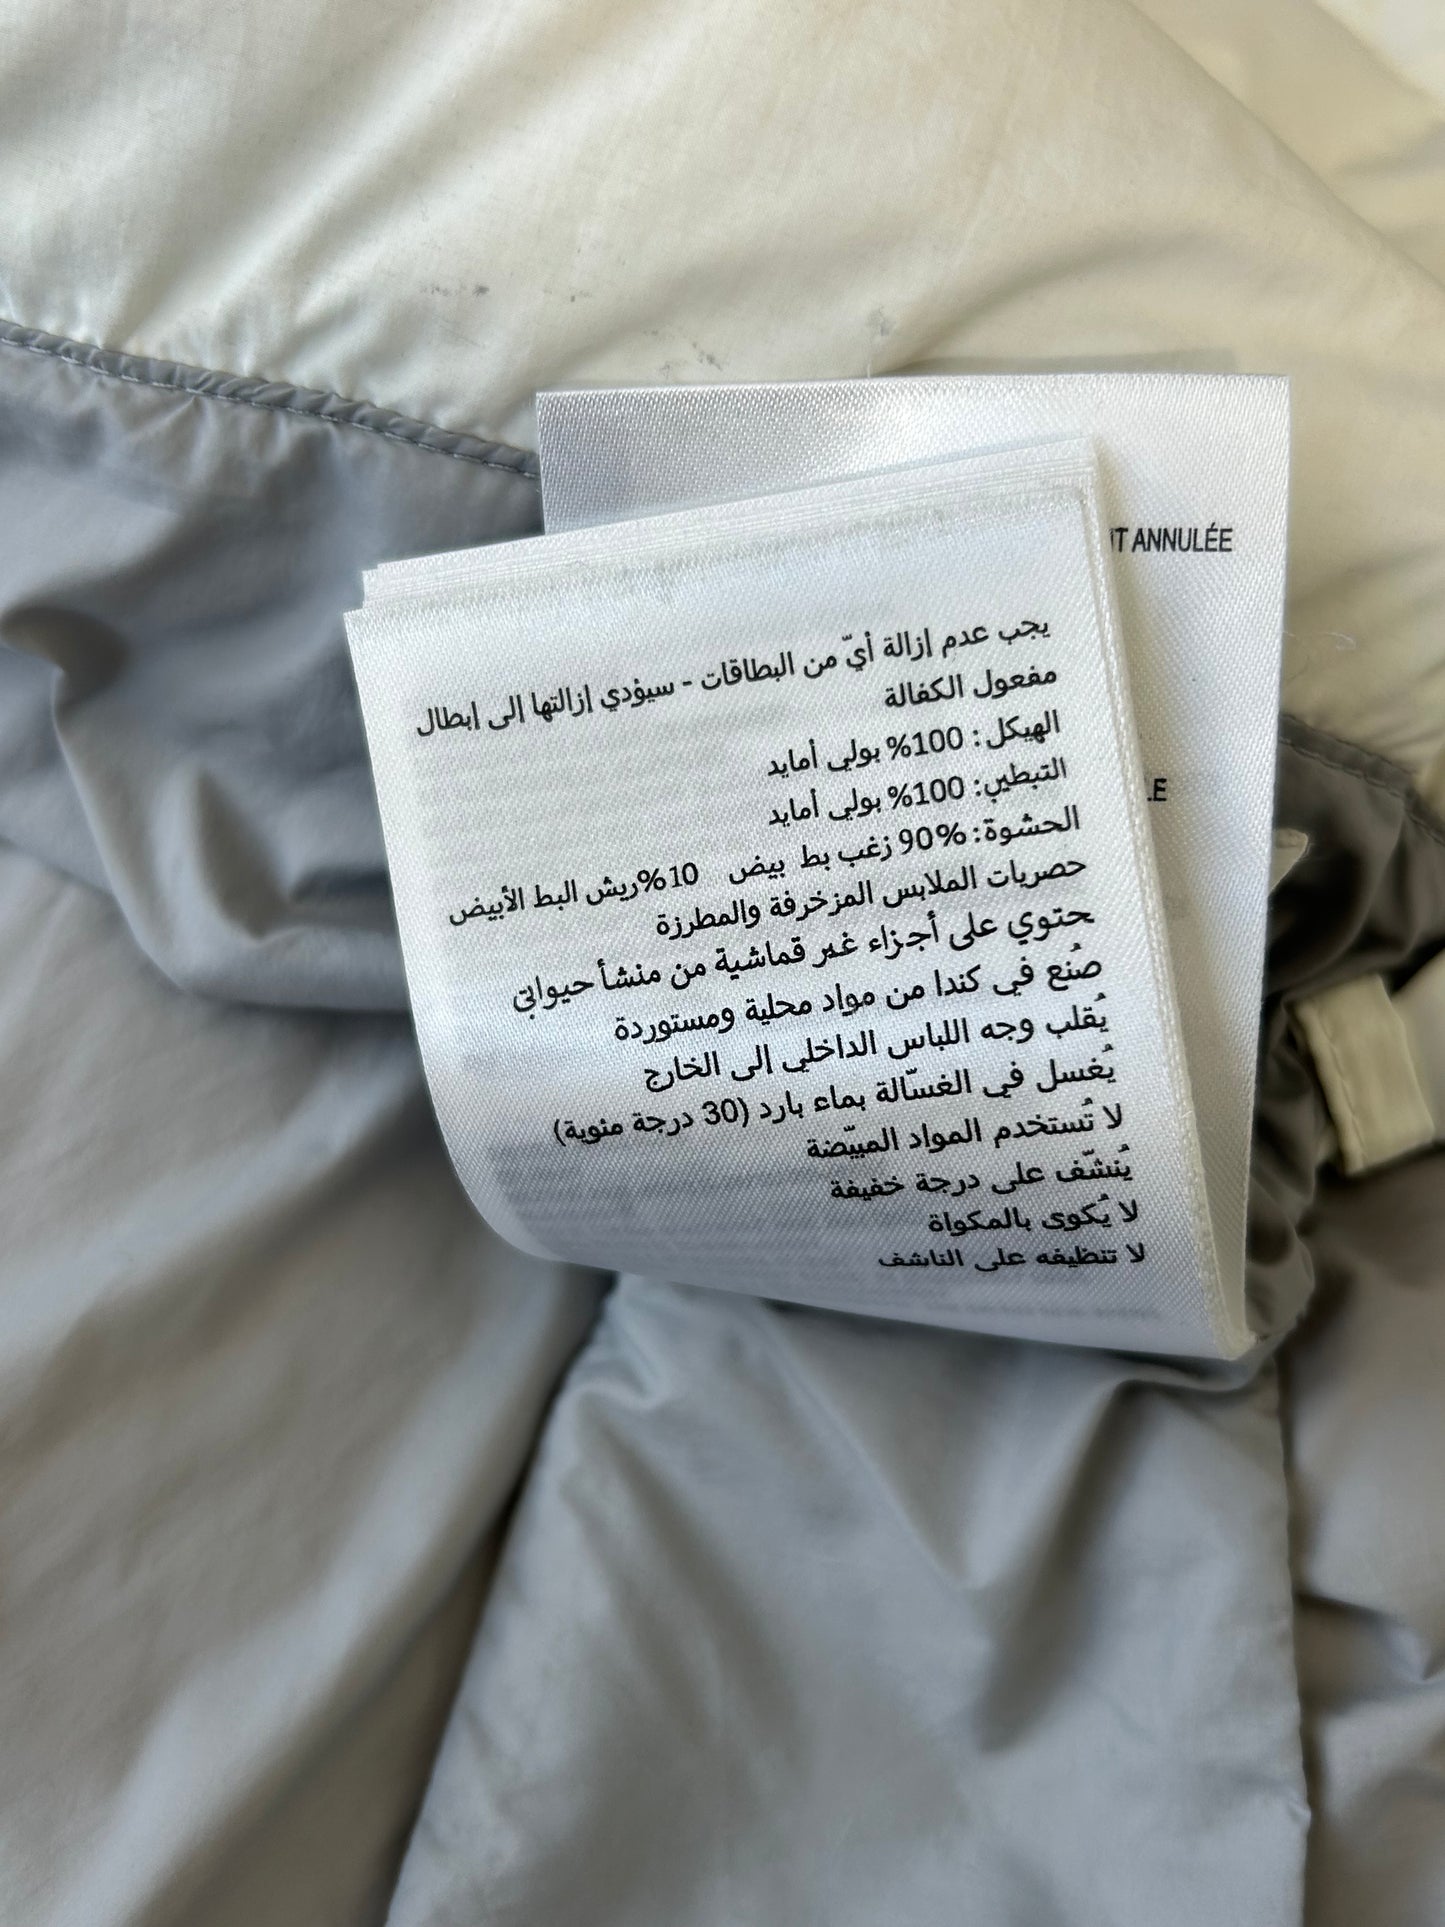 T ANNULÉE
LE
يجب عدم إزالة أيّ من البطاقات - سيؤدي إزالتها إلى إبطال
مفعول الكفالة
الهيكل: 100% بولي أمايد
التبطين: 100% بولي أمايد
الحشوة: 90% زغب بط بيض 10%ريش البط الأبيض
حصريات الملابس المزخرفة والمطرزة
يحتوي على أجزاء غير قماشية من منشأ حيواني
صُنع في كندا من مواد محلية ومستوردة
يُقلب وجه اللباس الداخلي إلى الخارج
يُغسل في الغسّالة بماء بارد (30 درجة مئوية)
لا تُستخدم المواد المبيّضة
يُنشّف على درجة خفيفة
لا يُكوى بالمكواة
لا تنظيفه على الناشف